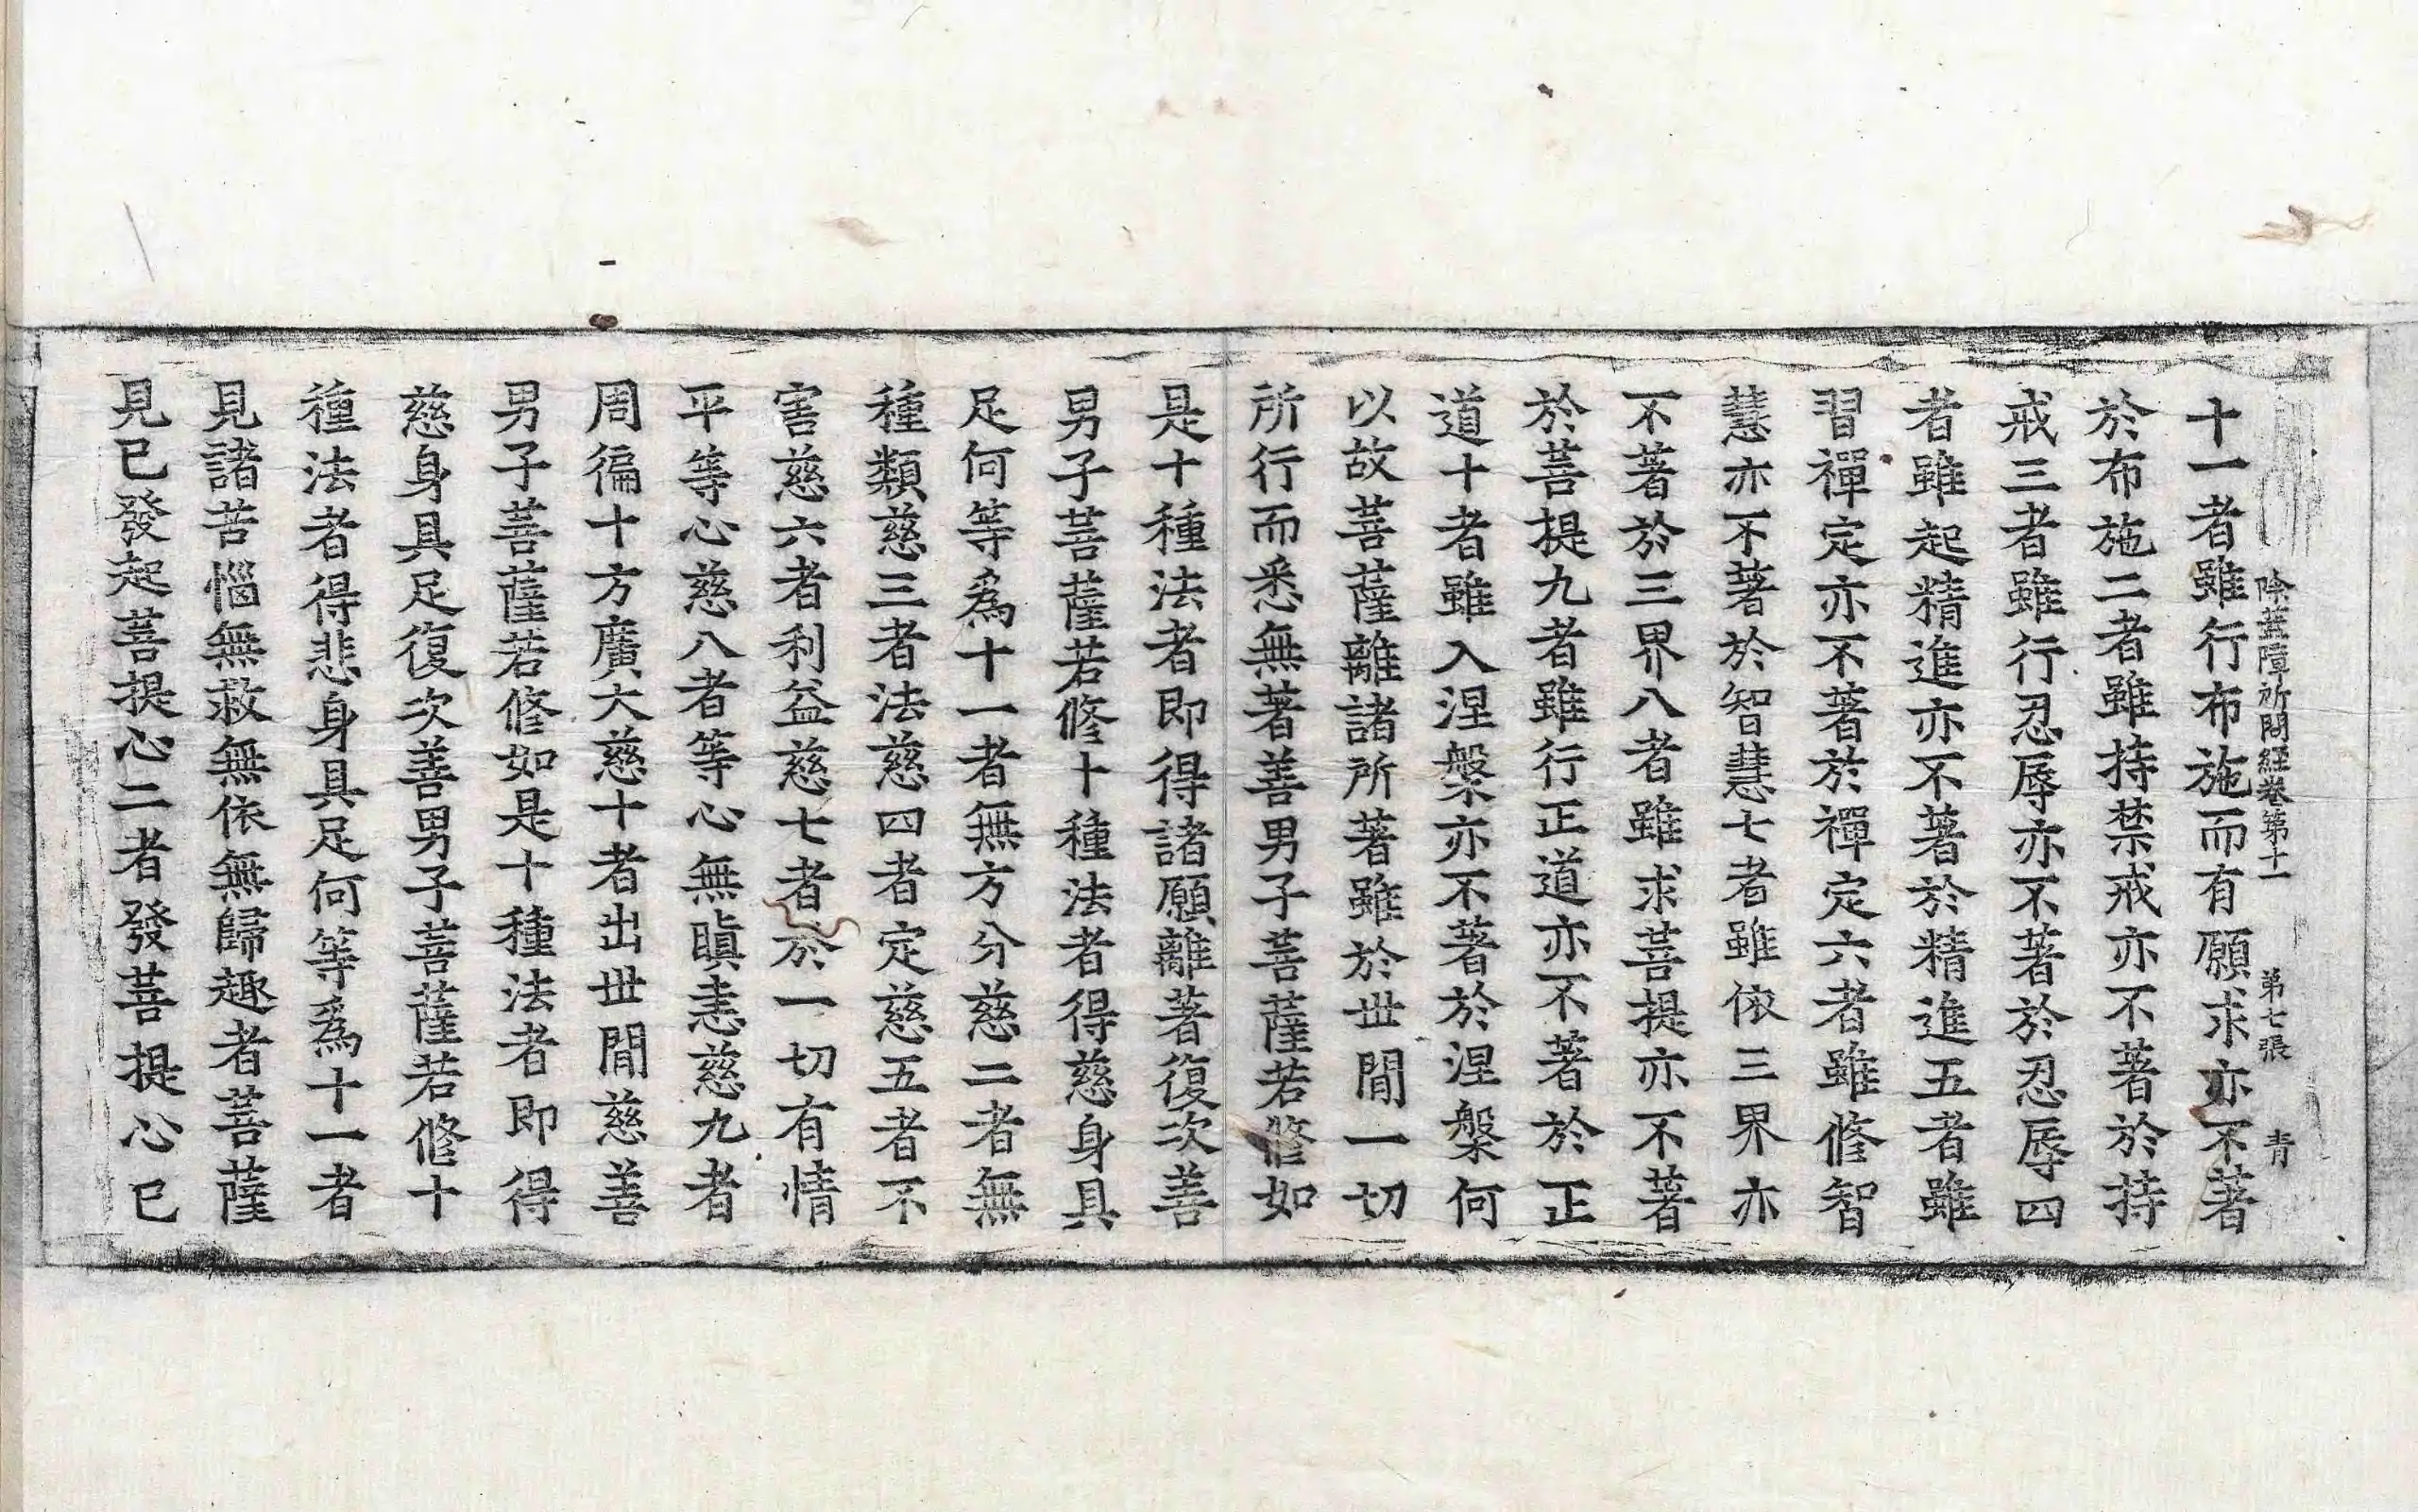 除蓋障所問經卷第十一　第七張　青
十一者雖行布施而有願求亦不著
於布施二者雖持禁戒亦不著於持
戒三者雖行忍辱亦不著於忍辱四
者雖起精進亦不著於精進五者雖
習禪定亦不著於禪定六者雖修智
慧亦不著於智慧七者雖依三界亦
不著於三界八者雖求菩提亦不著
於菩提九者雖行正道亦不著於正
道十者雖入涅槃亦不著於涅槃何
以故菩薩離諸所著雖於世間一切
所行而悉無著善男子菩薩若修如
是十種法者即得諸願離著復次善
男子菩薩若修十種法者得慈身具
足何等爲十一者無方分慈二者無
種類慈三者法慈四者定慈五者不
害慈六者利益慈七者於一切有情
平等心慈八者等心無瞋恚慈九者
周徧十方廣大慈十者出世間慈善
男子菩薩若修如是十種法者即得
慈身具足復次善男子菩薩若修十
種法者得悲身具足何等爲十一者
見諸苦惱無救無依無歸趣者菩薩
見已發起菩提心二者發菩提心已